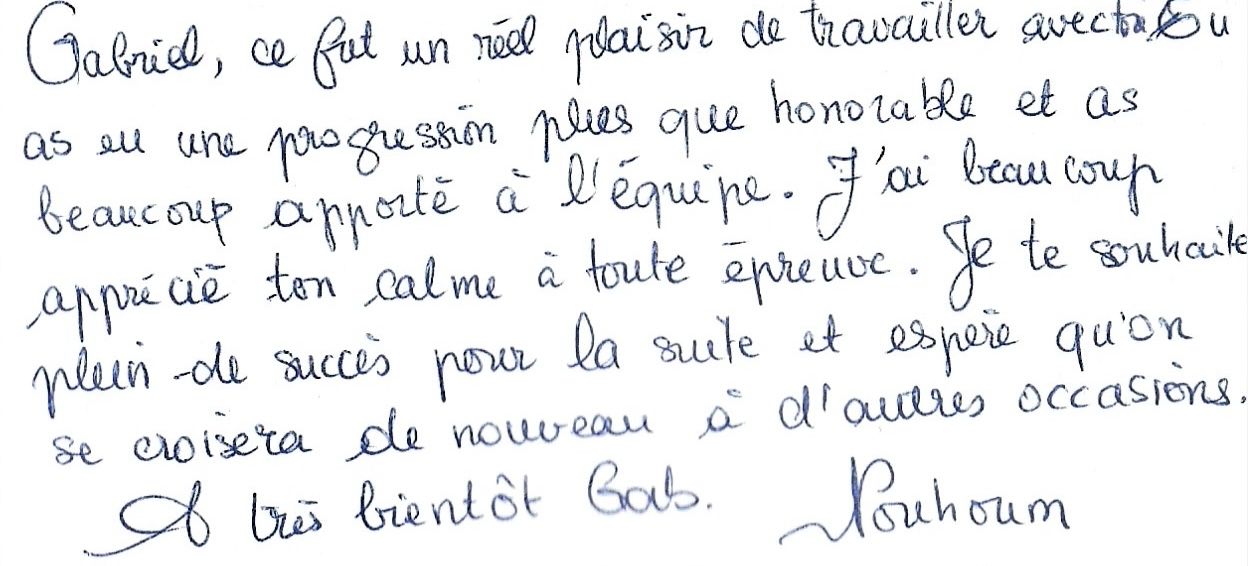 Gabriel, ce fut un réel plaisir de travailler avec toi. Tu
as eu une progression plus que honorable et as
beaucoup apporté à l'équipe. J'ai beaucoup
apprécié ton calme à toute épreuve. Je te souhaite
plein de succès pour la suite et espère qu'on
se croisera de nouveau à d'autres occasions.
A très bientôt Gab. Nouhoum